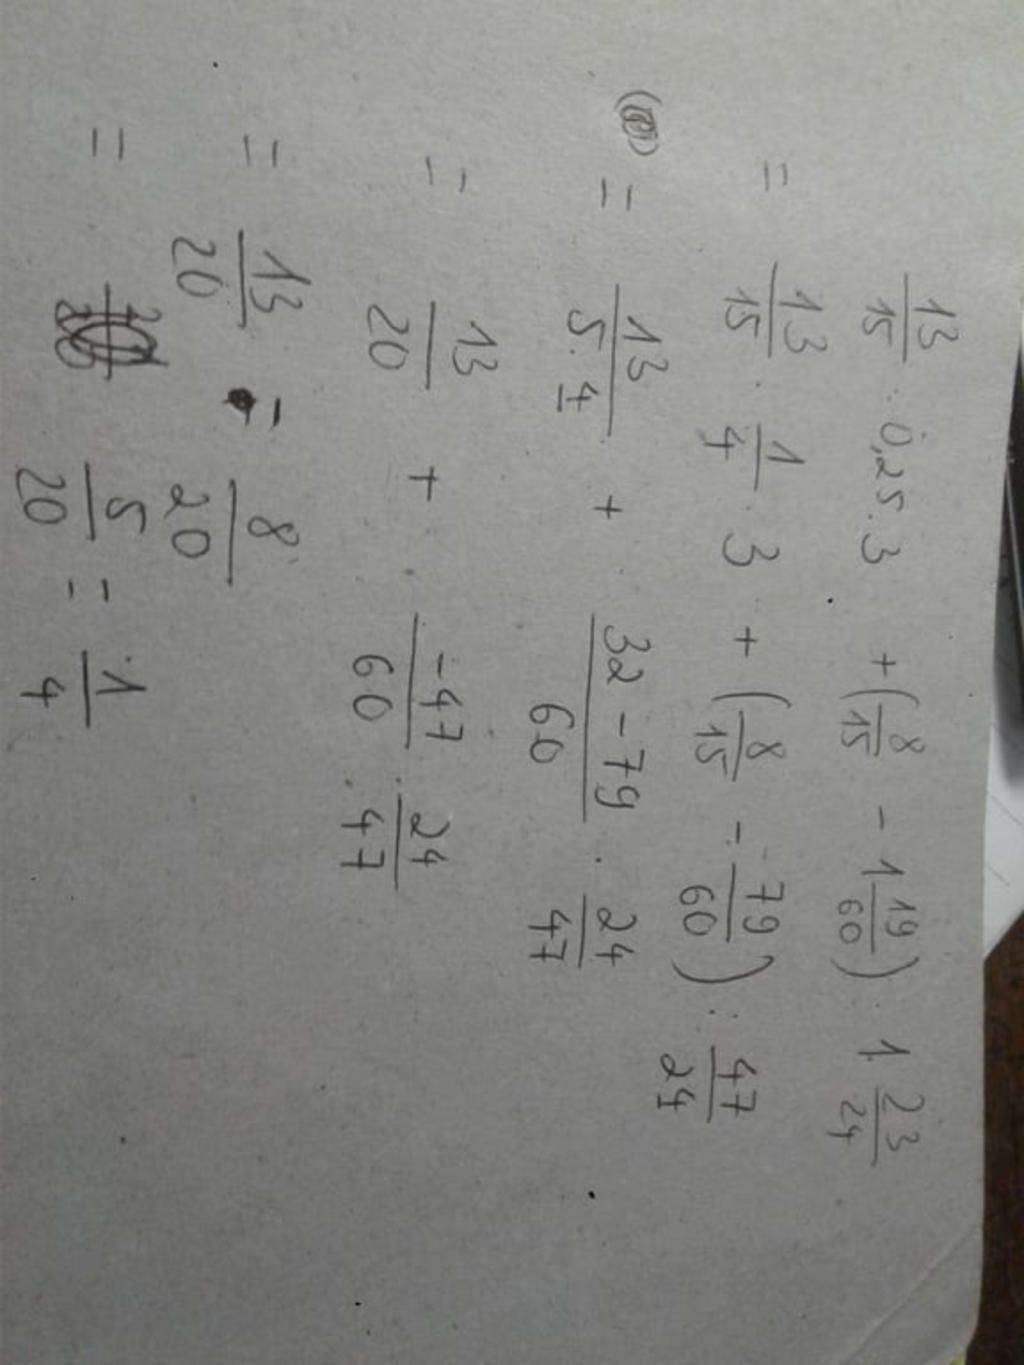 13/15 · 0,25 · 3 + (8/15 - 1 19/60) : 1 23/24
= 13/15 · 1/4 · 3 + (8/15 - 79/60) : 47/24
= 13/(5·4) + (32-79)/60 · 24/47
= 13/20 + -47/60 · 24/47
= 13/20 - 8/20
= 5/20 = 1/4